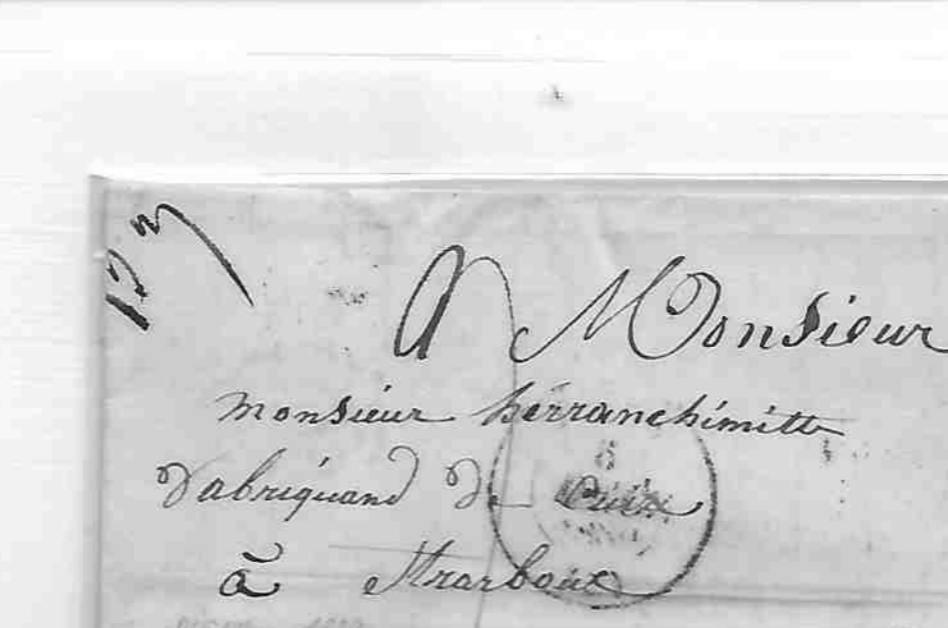 A Monsieur
monsieur herranchimitte
dabriquand de Cuire
à Strarboux